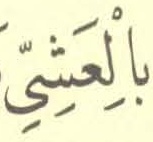 بِالْعَشِيِّ